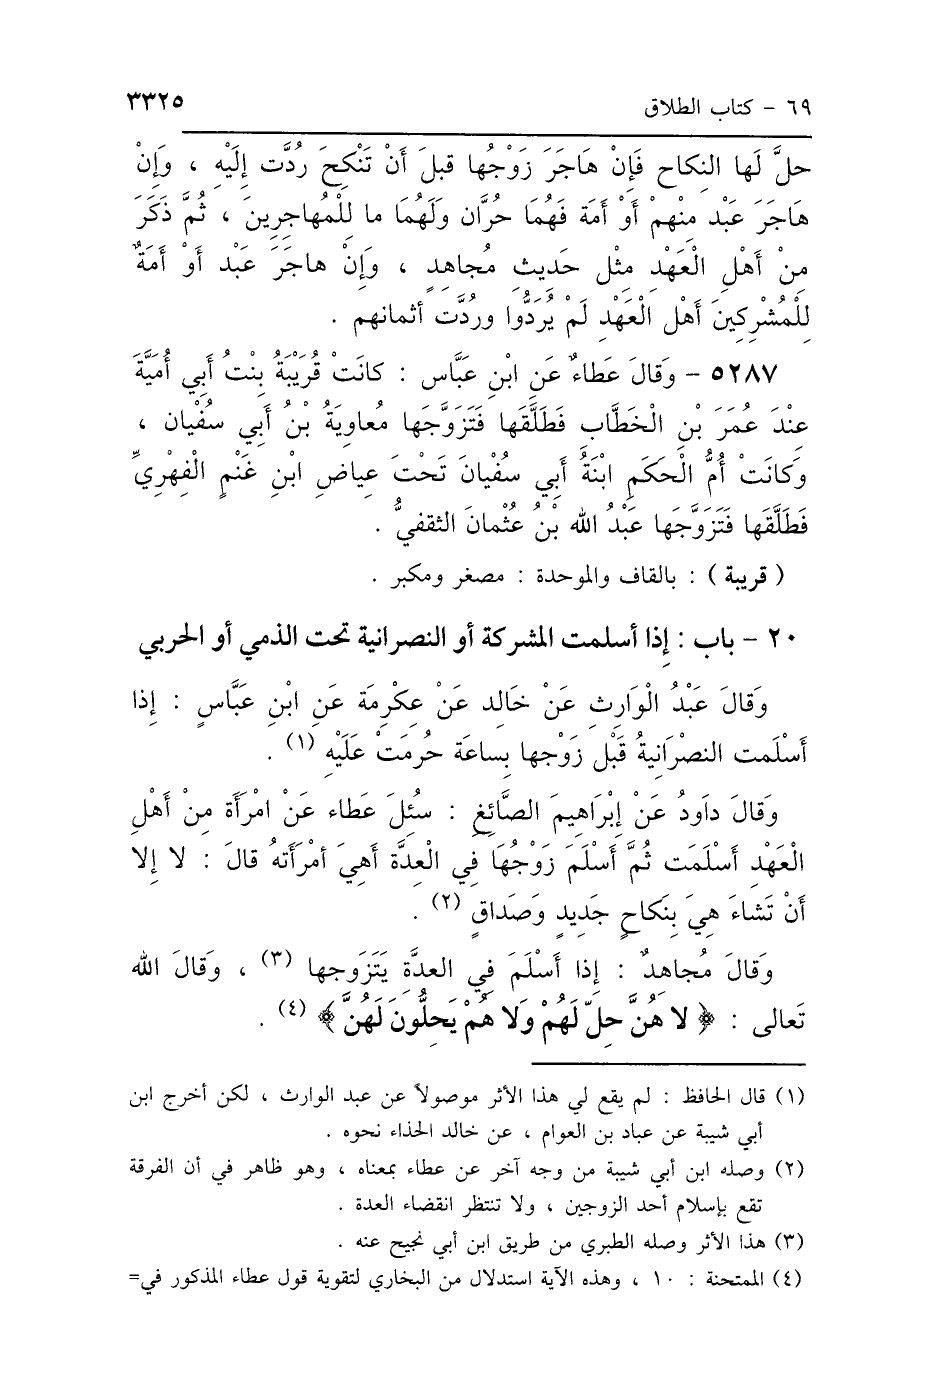 ٦٩ - كتاب الطلاق ٣٣٢٥
حلَّ لَها النكاح فَإِنْ هَاجَرَ زَوْجُها قبلَ أَنْ تَنْكِحَ رُدَّت إِلَيْهِ ، وَإِنْ
هَاجَرَ عَبْد مِنْهمْ أَوْ أَمَة فَهُمَا حُرَّان وَلَهُمَا ما لِلْمُهاجِرِينَ ، ثُمَّ ذَكَرَ
مِنْ أَهْلِ الْعَهْدِ مثْل حَدِيثِ مُجاهِدٍ ، وَإِنْ هاجَرَ عَبْد أَوْ أَمَةٌ
لِلْمُشْرِكِينَ أَهْل الْعَهْدِ لَمْ يُرَدُّوا وَرُدَّت أثمانهم .
٥٢٨٧ - وَقالَ عَطاءٌ عَنِ ابْنِ عَبَّاس : كانَتْ قُرَيْبَةُ بِنْتُ أَبِي أُمَيَّةَ
عِنْدَ عُمَرَ بْنِ الْخَطَّاب فَطَلَّقَها فَتَزَوَّجَها مُعاوِيَةُ بْنُ أَبي سُفْيان ،
وَكانَتْ أُمُّ الْحَكَمِ ابْنَةُ أَبِي سُفْيانَ تَحْتَ عِياضِ ابْنِ غَنْمٍ الْفِهْرِيِّ
فَطَلَّقَها فَتَزَوَّجَها عَبْدُ الله بْنُ عُثْمانَ الثقفيُّ .
( قريبة ) : بالقاف والموحدة : مصغر ومكبر .
٢٠ - باب : إذا أسلمت المشركة أو النصرانية تحت الذمي أو الحربي
وَقالَ عَبْدُ الْوَارِثِ عَنْ خَالِد عَنْ عِكْرِمَة عَنِ ابْنِ عَبَّاسٍ : إِذا
أَسْلَمت النصْرَانيةُ قَبْل زَوْجها بِساعَة حُرمَتْ عَلَيْهِ (١) .
وَقالَ داوُدُ عَنْ إِبْرَاهِيمَ الصَّائِغِ : سئُلَ عَطاء عَنْ امْرأَة مِنْ أَهْلِ
الْعَهْدِ أَسْلَمَت ثُمَّ أَسْلَمَ زَوْجُهَا فِي الْعِدَّة أَهِيَ أمْرَأَتهُ قالَ : لا إِلا
أَنْ تَشاءَ هِيَ بِنَكاحٍ جَدِيدٍ وَصَداقٍ (٢) .
وَقالَ مُجاهدٌ : إِذا أَسْلَمَ فِي العدَّةِ يَتَزَوجها (٣) ، وَقالَ الله
تَعالى : ﴿ لا هُنَّ حِلّ لَهُمْ وَلا هُمْ يَحِلُّونَ لَهُنَّ ﴾ (٤) .
(١) قال الحافظ : لم يقع لي هذا الأثر موصولاً عن عبد الوارث ، لكن أخرج ابن
أبي شيبة عن عباد بن العوام ، عن خالد الحذاء نحوه .
(٢) وصله ابن أبي شيبة من وجه آخر عن عطاء بمعناه ، وهو ظاهر في أن الفرقة
تقع بإسلام أحد الزوجين ، ولا تنتظر انقضاء العدة .
(٣) هذا الأثر وصله الطبري من طريق ابن أبي نجيح عنه .
(٤) الممتحنة : ١٠ ، وهذه الآية استدلال من البخاري لتقوية قول عطاء المذكور في=